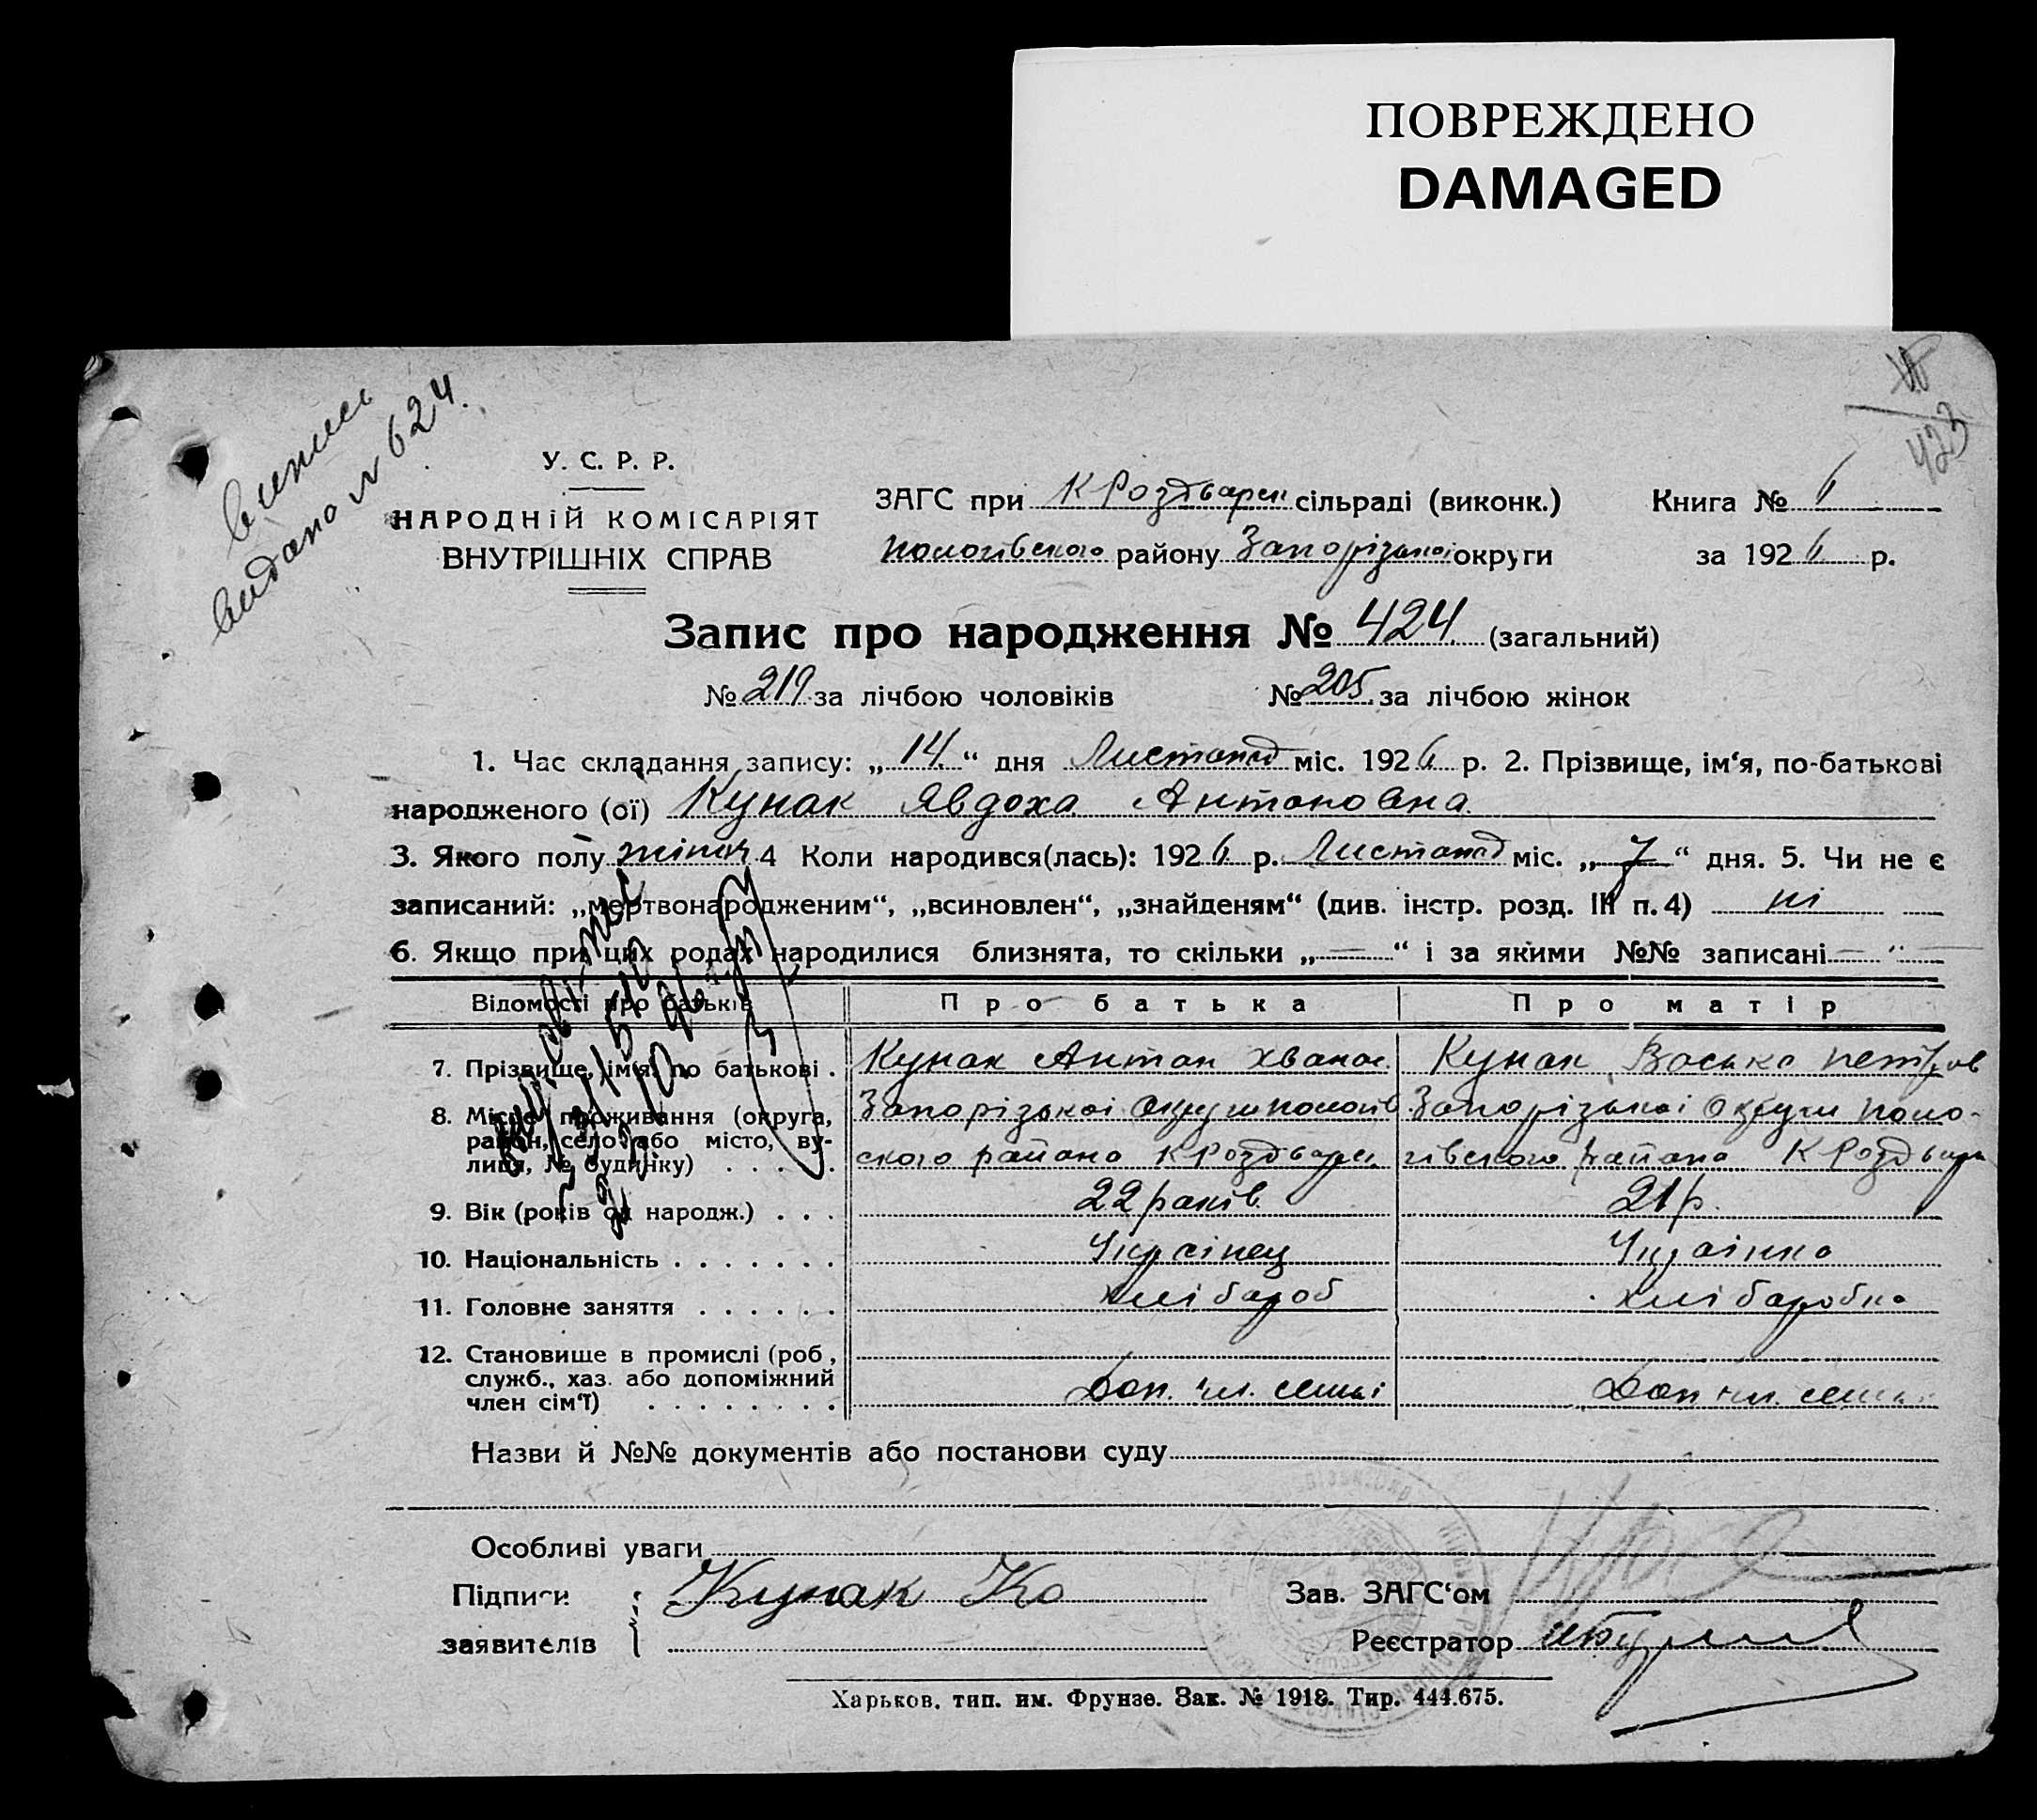 ПОВРЕЖДЕНО
DAMAGED
випись
видано N 624.
423
У. С. Р. Р.
НАРОДНІЙ КОМІСАРІЯТ
ВНУТРІШНІХ СПРАВ
ЗАГС при К Роздварен сільраді (виконк.) Книга № 6
Пологівского району Запорізької округи за 1926 р.
Запис про народження № 424 (загальний)
№ 219 за лічбою чоловіків № 205 за лічбою жінок
1. Час складання запису: „14“ дня Листопад міс. 1926 р. 2. Прізвище, ім‘я, по-батькові
народженого (ої) Кунак Явдоха Антоновна
3. Якого полу жіноч 4 Коли народився(лась): 1926 р. Листопад міс. „7“ дня. 5. Чи не є
записаний: „мертвонародженим“, „всиновлен“, „знайденям“ (див. інстр. розд. III п. 4) ні
6. Якщо при цих родах народилися близнята, то скільки „—“ і за якими №№ записані — „
Відомості про батьків Про батька Про матір
7. Прізвище, ім‘я, по батькові . Кунак Антон Хванас. Кунак Васька Петров
8. Місце проживання (округа, район, село або місто, вулиця, № будинку) . . . . . Запорізької Округи пологів
ского района К Роздварен. Запорізької Округи поло-
гівского района К Роздварен
9. Вік (років од народж.) . . . 22 років. 21 р.
10. Національність . . . . . . . Українец Українка
11. Головне заняття . . . . . . хлібароб хлібаробка
12. Становище в промислі (роб,
служб., хаз. або допоміжний
член сім‘ї) . . . . . . . . Доп. чл. семьі Доп чл. семьі
Назви й №№ документів або постанови суду
Особливі уваги
Підписи Кунак Зав. ЗАГС‘ом
заявителів Реєстратор
Харьков, тип. им. Фрунзе. Зак. № 1918. Тир. 444.675.